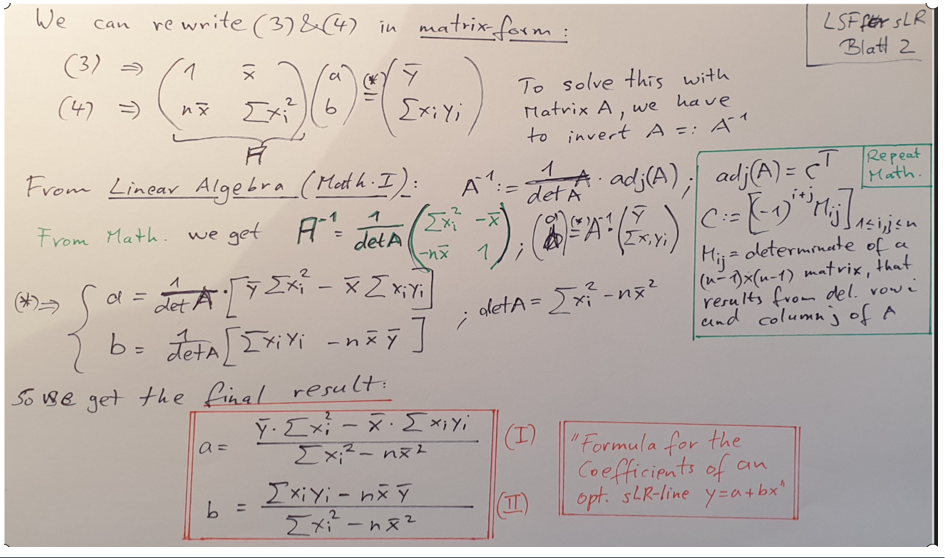 We can rewrite (3)&(4) in matrix-form:
LSF for sLR
Blatt 2
(3) ⇒ ( 1 x̄ ) ( a ) (*)= ( ȳ )
(4) ⇒ ( nx̄ Σxi² ) ( b ) ( Σxiyi )
A
To solve this with
Matrix A, we have
to invert A =: A⁻¹
From Linear Algebra (Math. I): A⁻¹ := 1/detA · adj(A);
Repeat
Math.
adj(A) = Cᵀ
C := [(-1)^(i+j) Mij] 1≤i,j≤n
Mij = determinate of a
(n-1)x(n-1) matrix, that
results from del. row i
and column j of A
From Math. we get A⁻¹ = 1/detA ( Σxi² -x̄ ; -nx̄ 1 ) ; ( a ; b ) (*)= A⁻¹ · ( ȳ ; Σxiyi )
(*) ⇒ { a = 1/detA · [ ȳ Σxi² - x̄ Σxiyi ]
b = 1/detA [ Σxiyi - nx̄ ȳ ]
; detA = Σxi² - nx̄²
So we get the final result:
a = (ȳ · Σxi² - x̄ · Σxiyi) / (Σxi² - nx̄²) (I)
b = (Σxiyi - nx̄ ȳ) / (Σxi² - nx̄²) (II)
"Formula for the
Coefficients of an
opt. sLR-line y=a+bx"